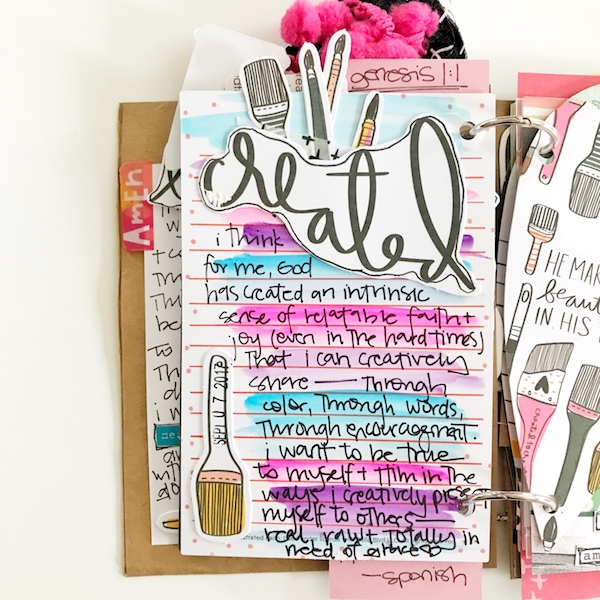 genesis 1:1
created
AMEN
i think
for me, God
has created an intrinsic
sense of relatable faith +
joy (even in the hard times)
that i can creatively
share — through
color, through words,
through encouragement.
i want to be true
to myself + Him in the
ways i creatively
myself to others —
real, raw + totally in
need of grace
SEPT 0 7 2017
—spanish
HE MA
beaut
IN HIS